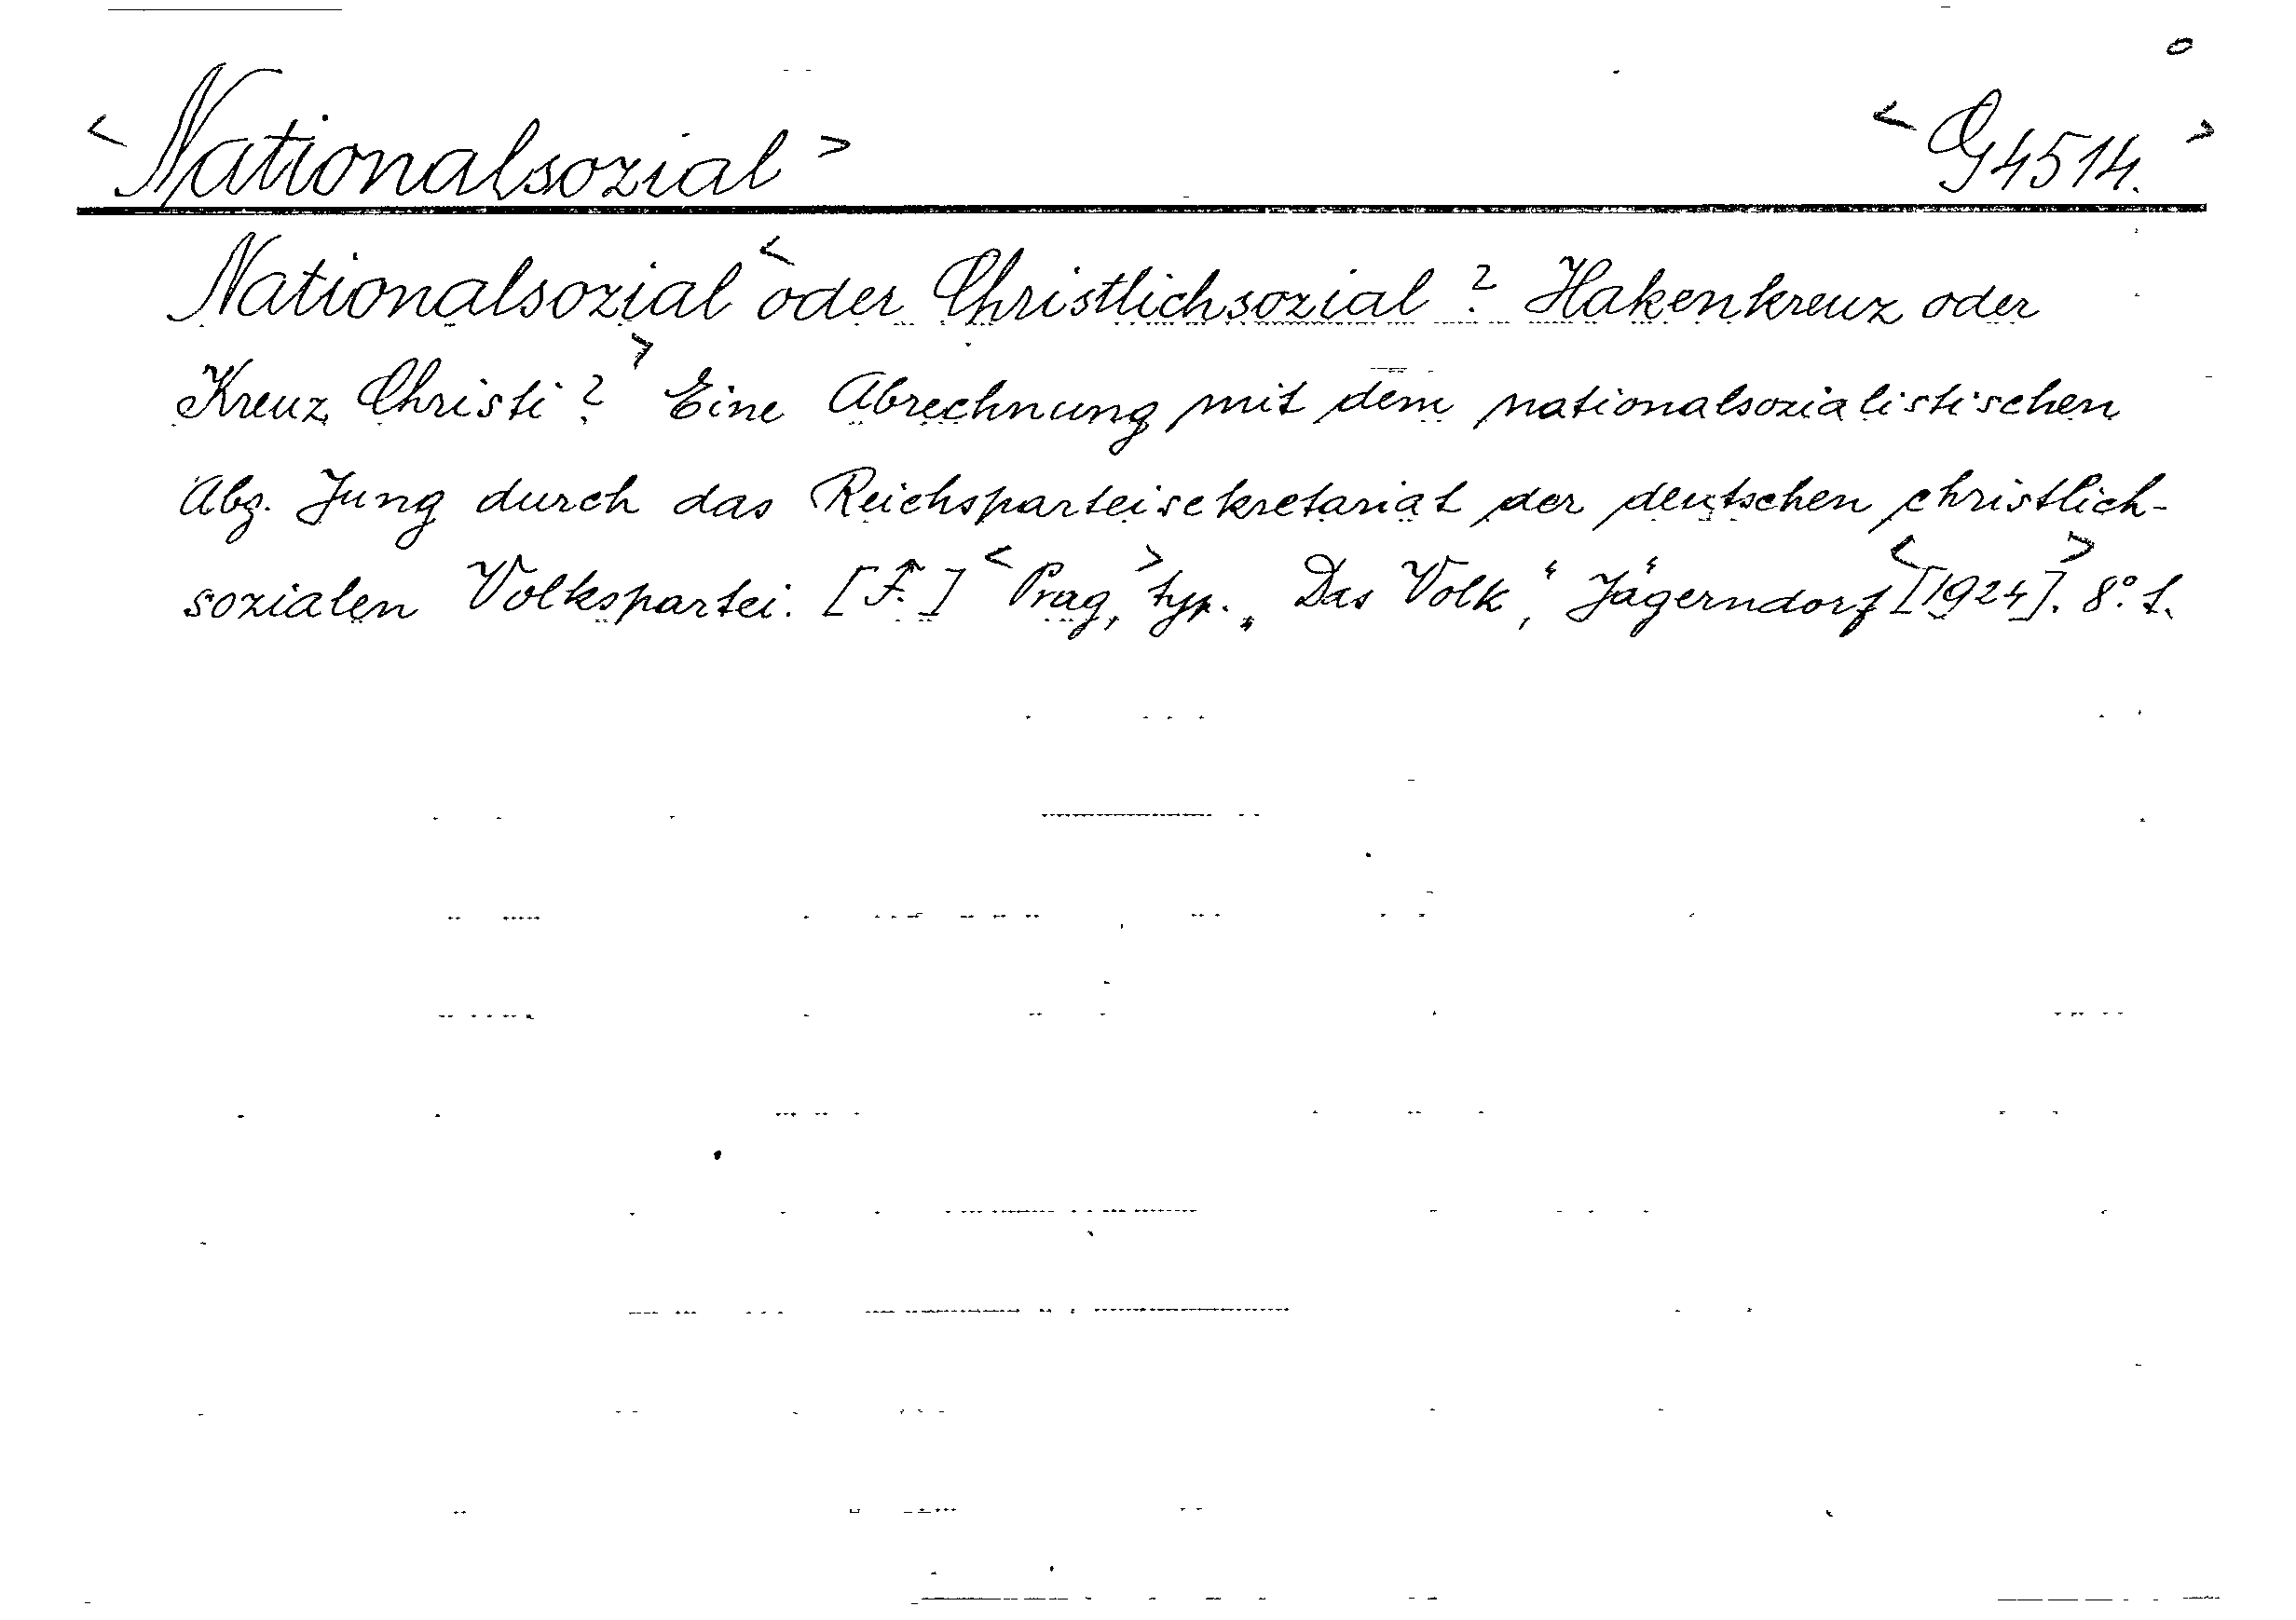 <Nationalsozial> <G4514.>
Nationalsozial <oder Christlichsozial? Hakenkreuz oder
Kreuz Christi?> Eine Abrechnung mit dem nationalsozialistischen
Abg. Jung durch das Reichsparteisekretariat der deutschen christlich-
sozialen Volkspartei. [F.] <Prag,> typ. „Das Volk“, Jägerndorf <[1924]>. 8°. 1.